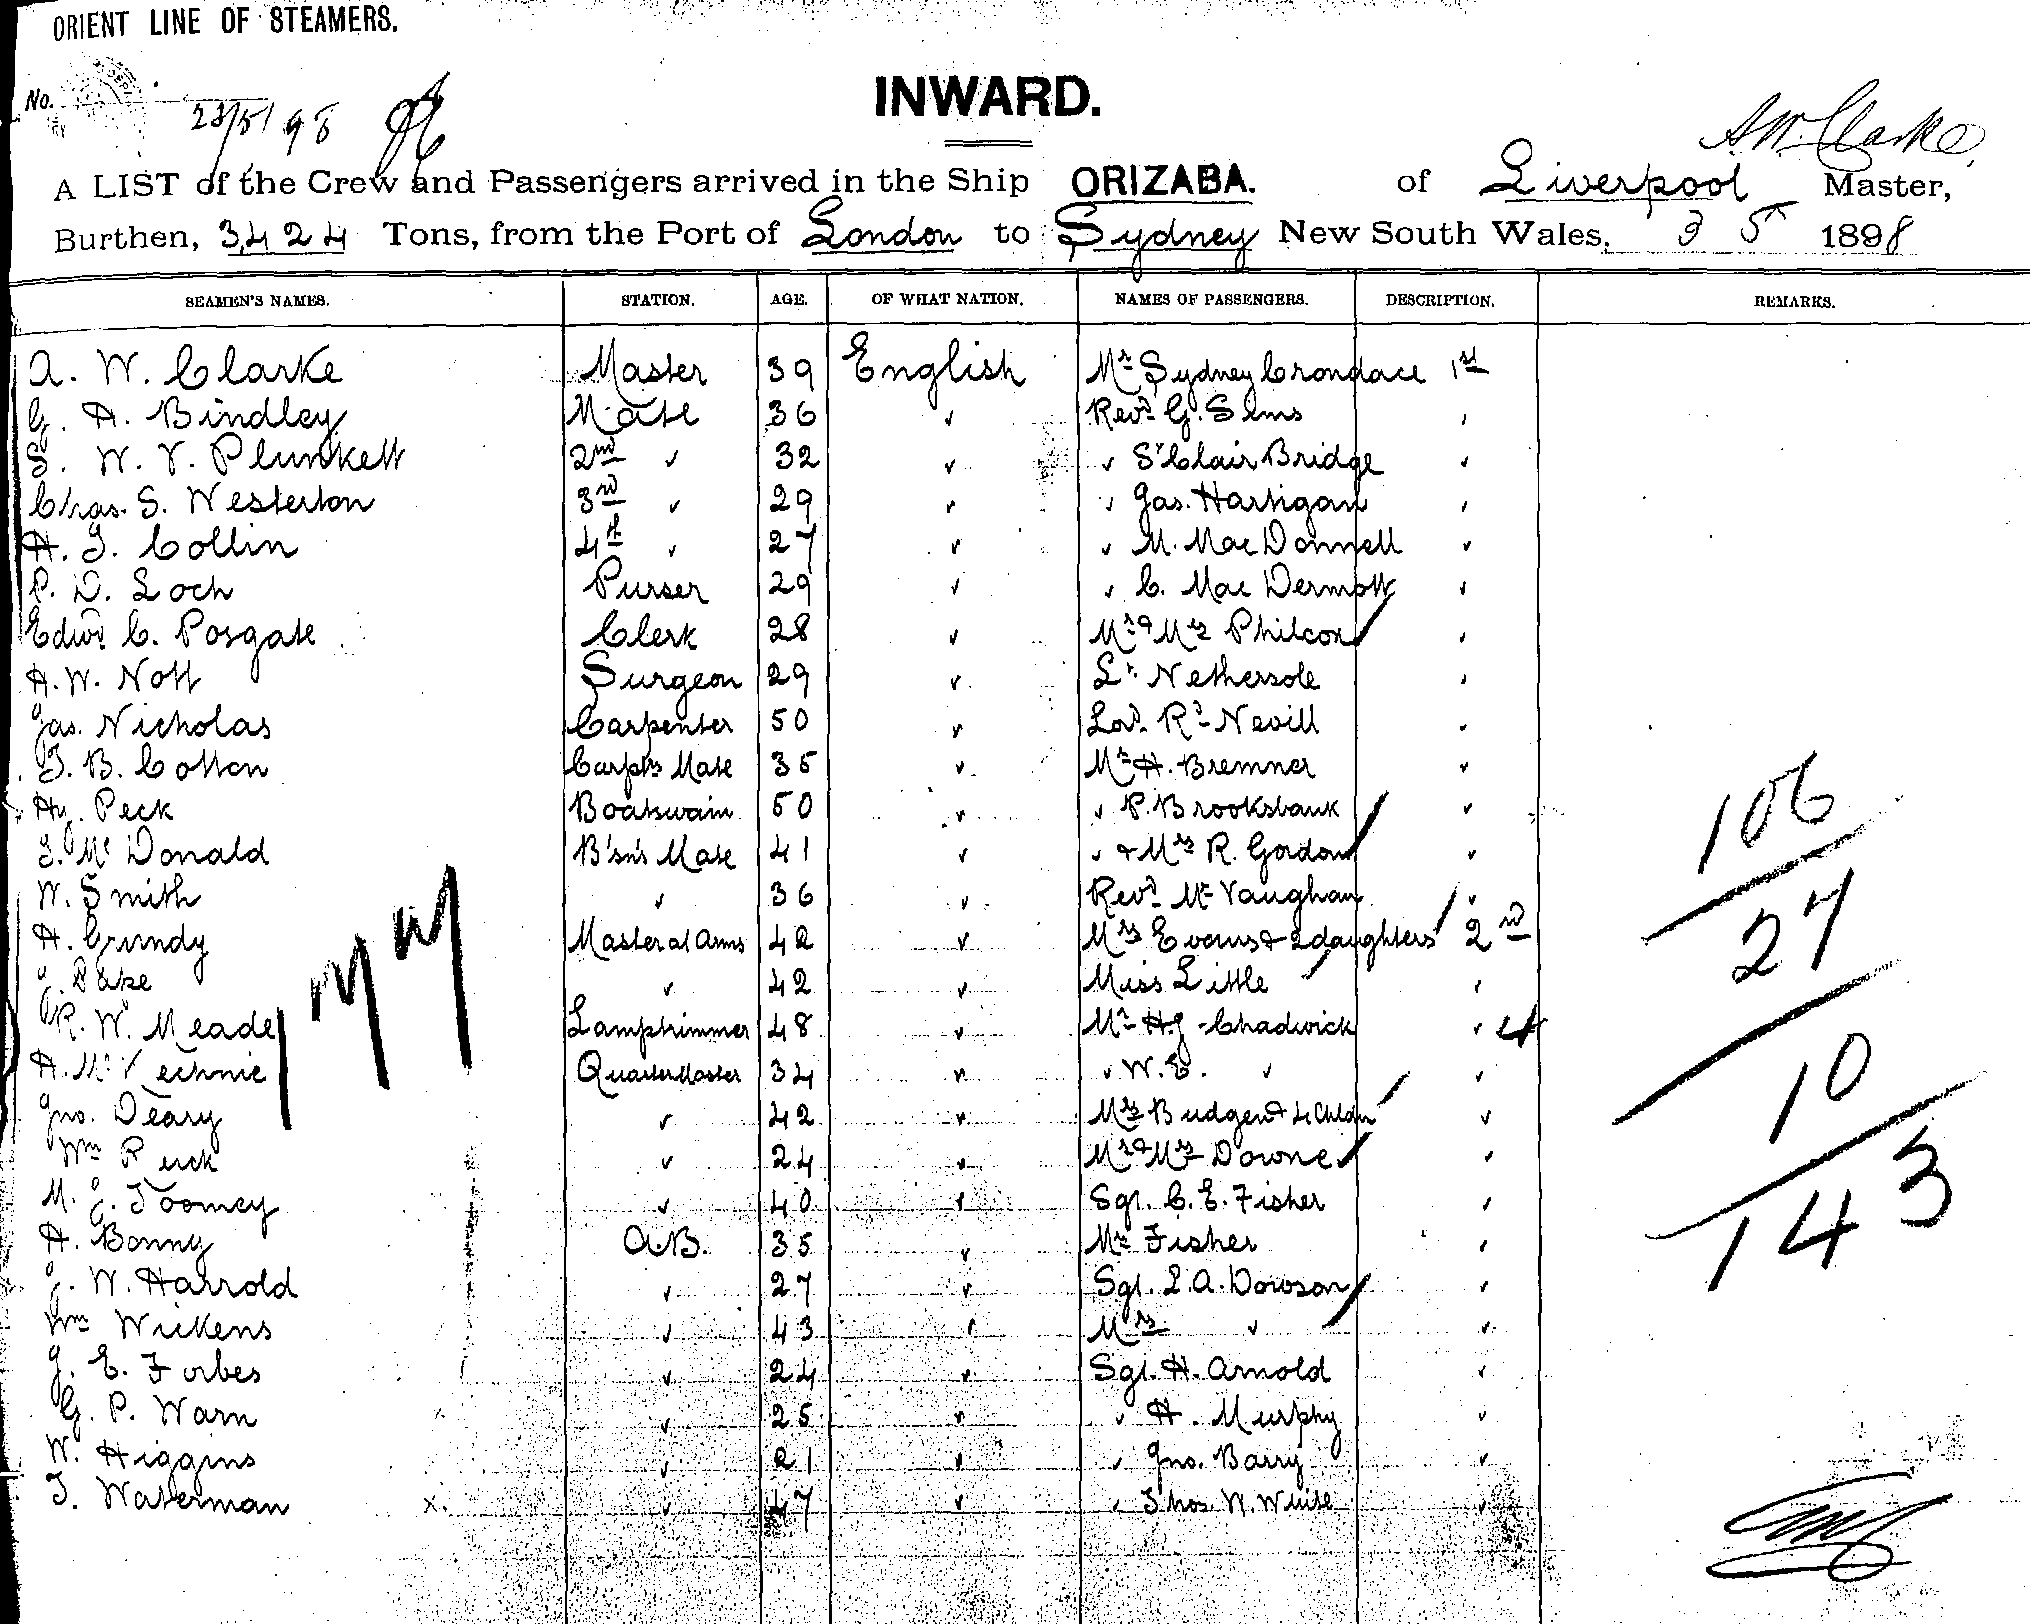 ORIENT LINE OF STEAMERS.
No.
23/5/98
INWARD.
A. W. Clarke
A LIST of the Crew and Passengers arrived in the Ship ORIZABA. of Liverpool Master,
Burthen, 3424 Tons, from the Port of London to Sydney New South Wales, 3 5 1898
SEAMEN'S NAMES. STATION. AGE. OF WHAT NATION. NAMES OF PASSENGERS. DESCRIPTION. REMARKS.
A. W. Clarke Master 39 English Mr Sydney Crondace 1st
G. H. Bindley Mate 36 " Revd G. Sims "
S. W. V. Plunkett 2nd " 32 " " St Clair Bridge "
Chas. S. Westerton 3rd " 29 " " Jas. Hartigan "
H. J. Collin 4th " 27 " " M. Mac Donnell "
P. D. Loch Purser 29 " " C. Mac Dermott "
Edwd C. Posgate Clerk 28 " Mr & Mrs Philcox "
H. W. Nott Surgeon 29 " Lt. Nethersole "
Jas. Nicholas Carpenter 50 " Lord Rd Nevill "
J. B. Cotton Carptrs Mate 35 " Mr H. Bremner "
Hy. Peck Boatswain 50 " " P. Brooksbank "
J. Mc Donald B'sn's Mate 41 " " & Mrs R. Gordon "
W. Smith " 36 " Revd Mr Vaughan "
H. Grundy Master at Arms 42 " Mrs Evans & 2 daughters 2nd
" 42 " Miss Little "
R. W. Meade Lamptrimmer 48 " Mr H J Chadwick "
H. McKechnie QuarterMaster 34 " " W. E. " "
Jno. Deary " 42 " Mrs Budgen & 4 Chldn "
Wm " 24 " Mr & Mrs Downe "
M. J. Toomey " 40 " Sgt. C. E. Fisher "
H. Bonny A.B. 35 " Mr Fisher "
J. W. Harrold " 27 " Sgt. L. A. Dowson "
Wm Wickens " 43 " Mrs " "
J. E. Forbes " 24 " Sgt. H. Arnold "
G. P. Warn " 25 " " H. Murphy "
W. Higgins " 21 " " Jno. Barry "
J. Waterman x. " 47 " " Thos. W. "
106
27
10
143